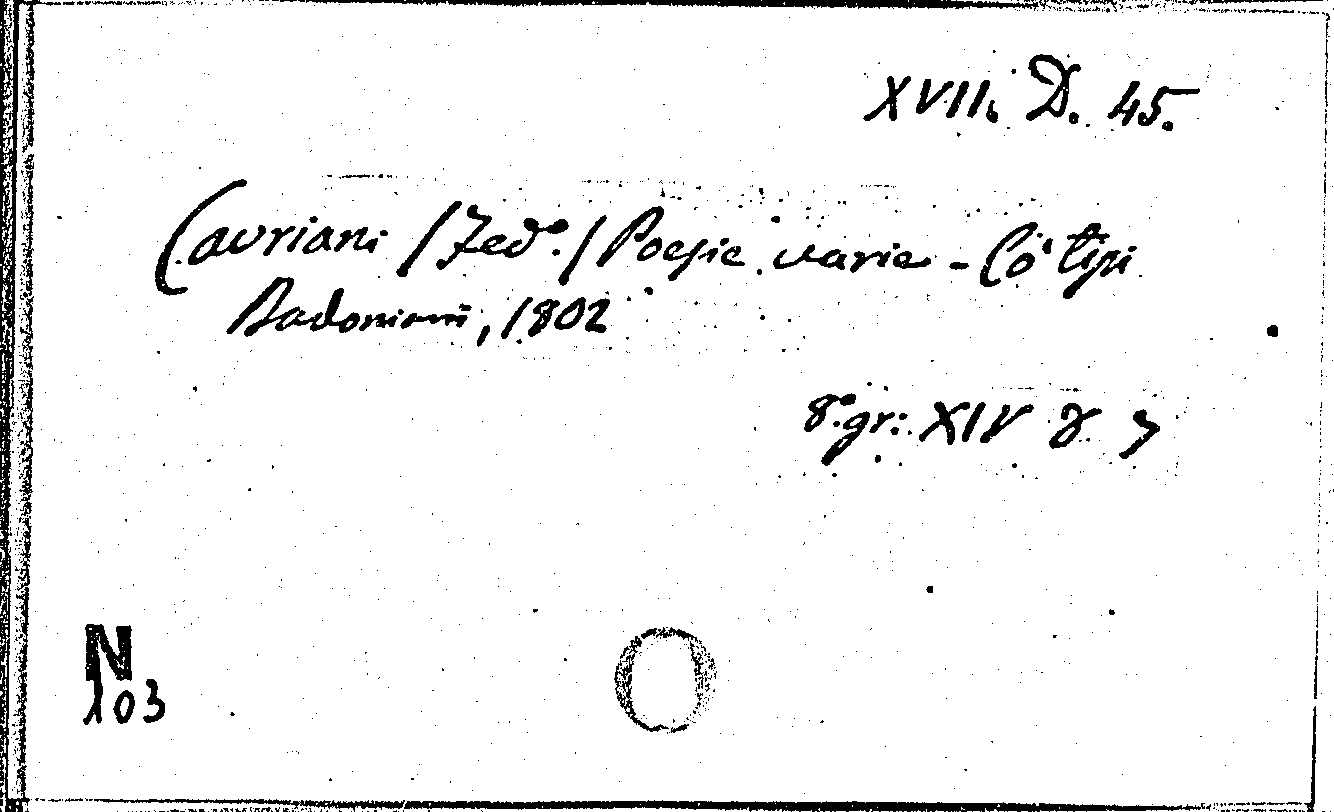 XVII. D. 45.
Cavriani /Fedº./ Poesie varie - Co' tipi
Bodoniani, 1802
8.º gr: XIV
N
103